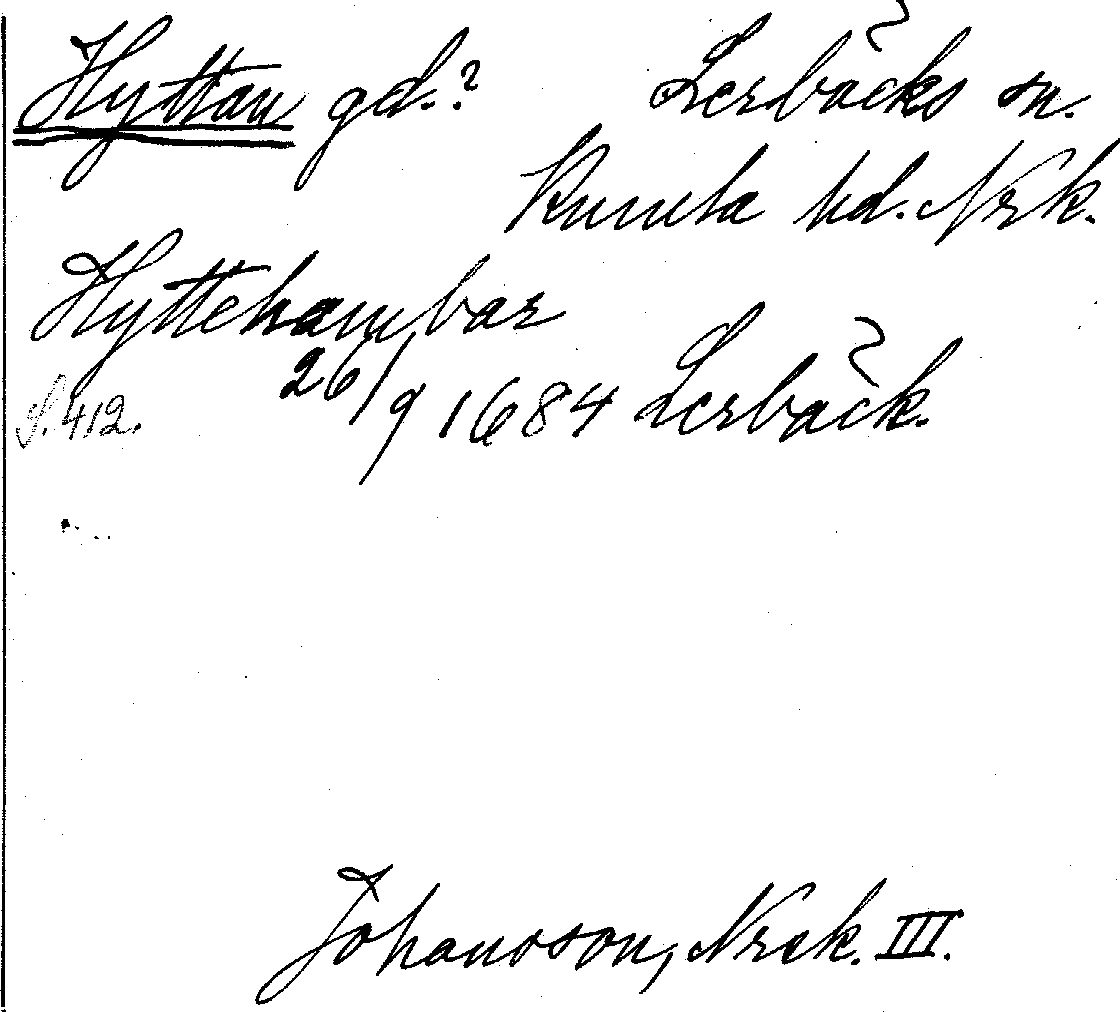 Hyttan gd.? Lerbäcks sn.
Kumla hd. Nrk.
Hyttehambar
26/9 1684 Lerbäck.
S. 412.
Johansson, Nrck. III.